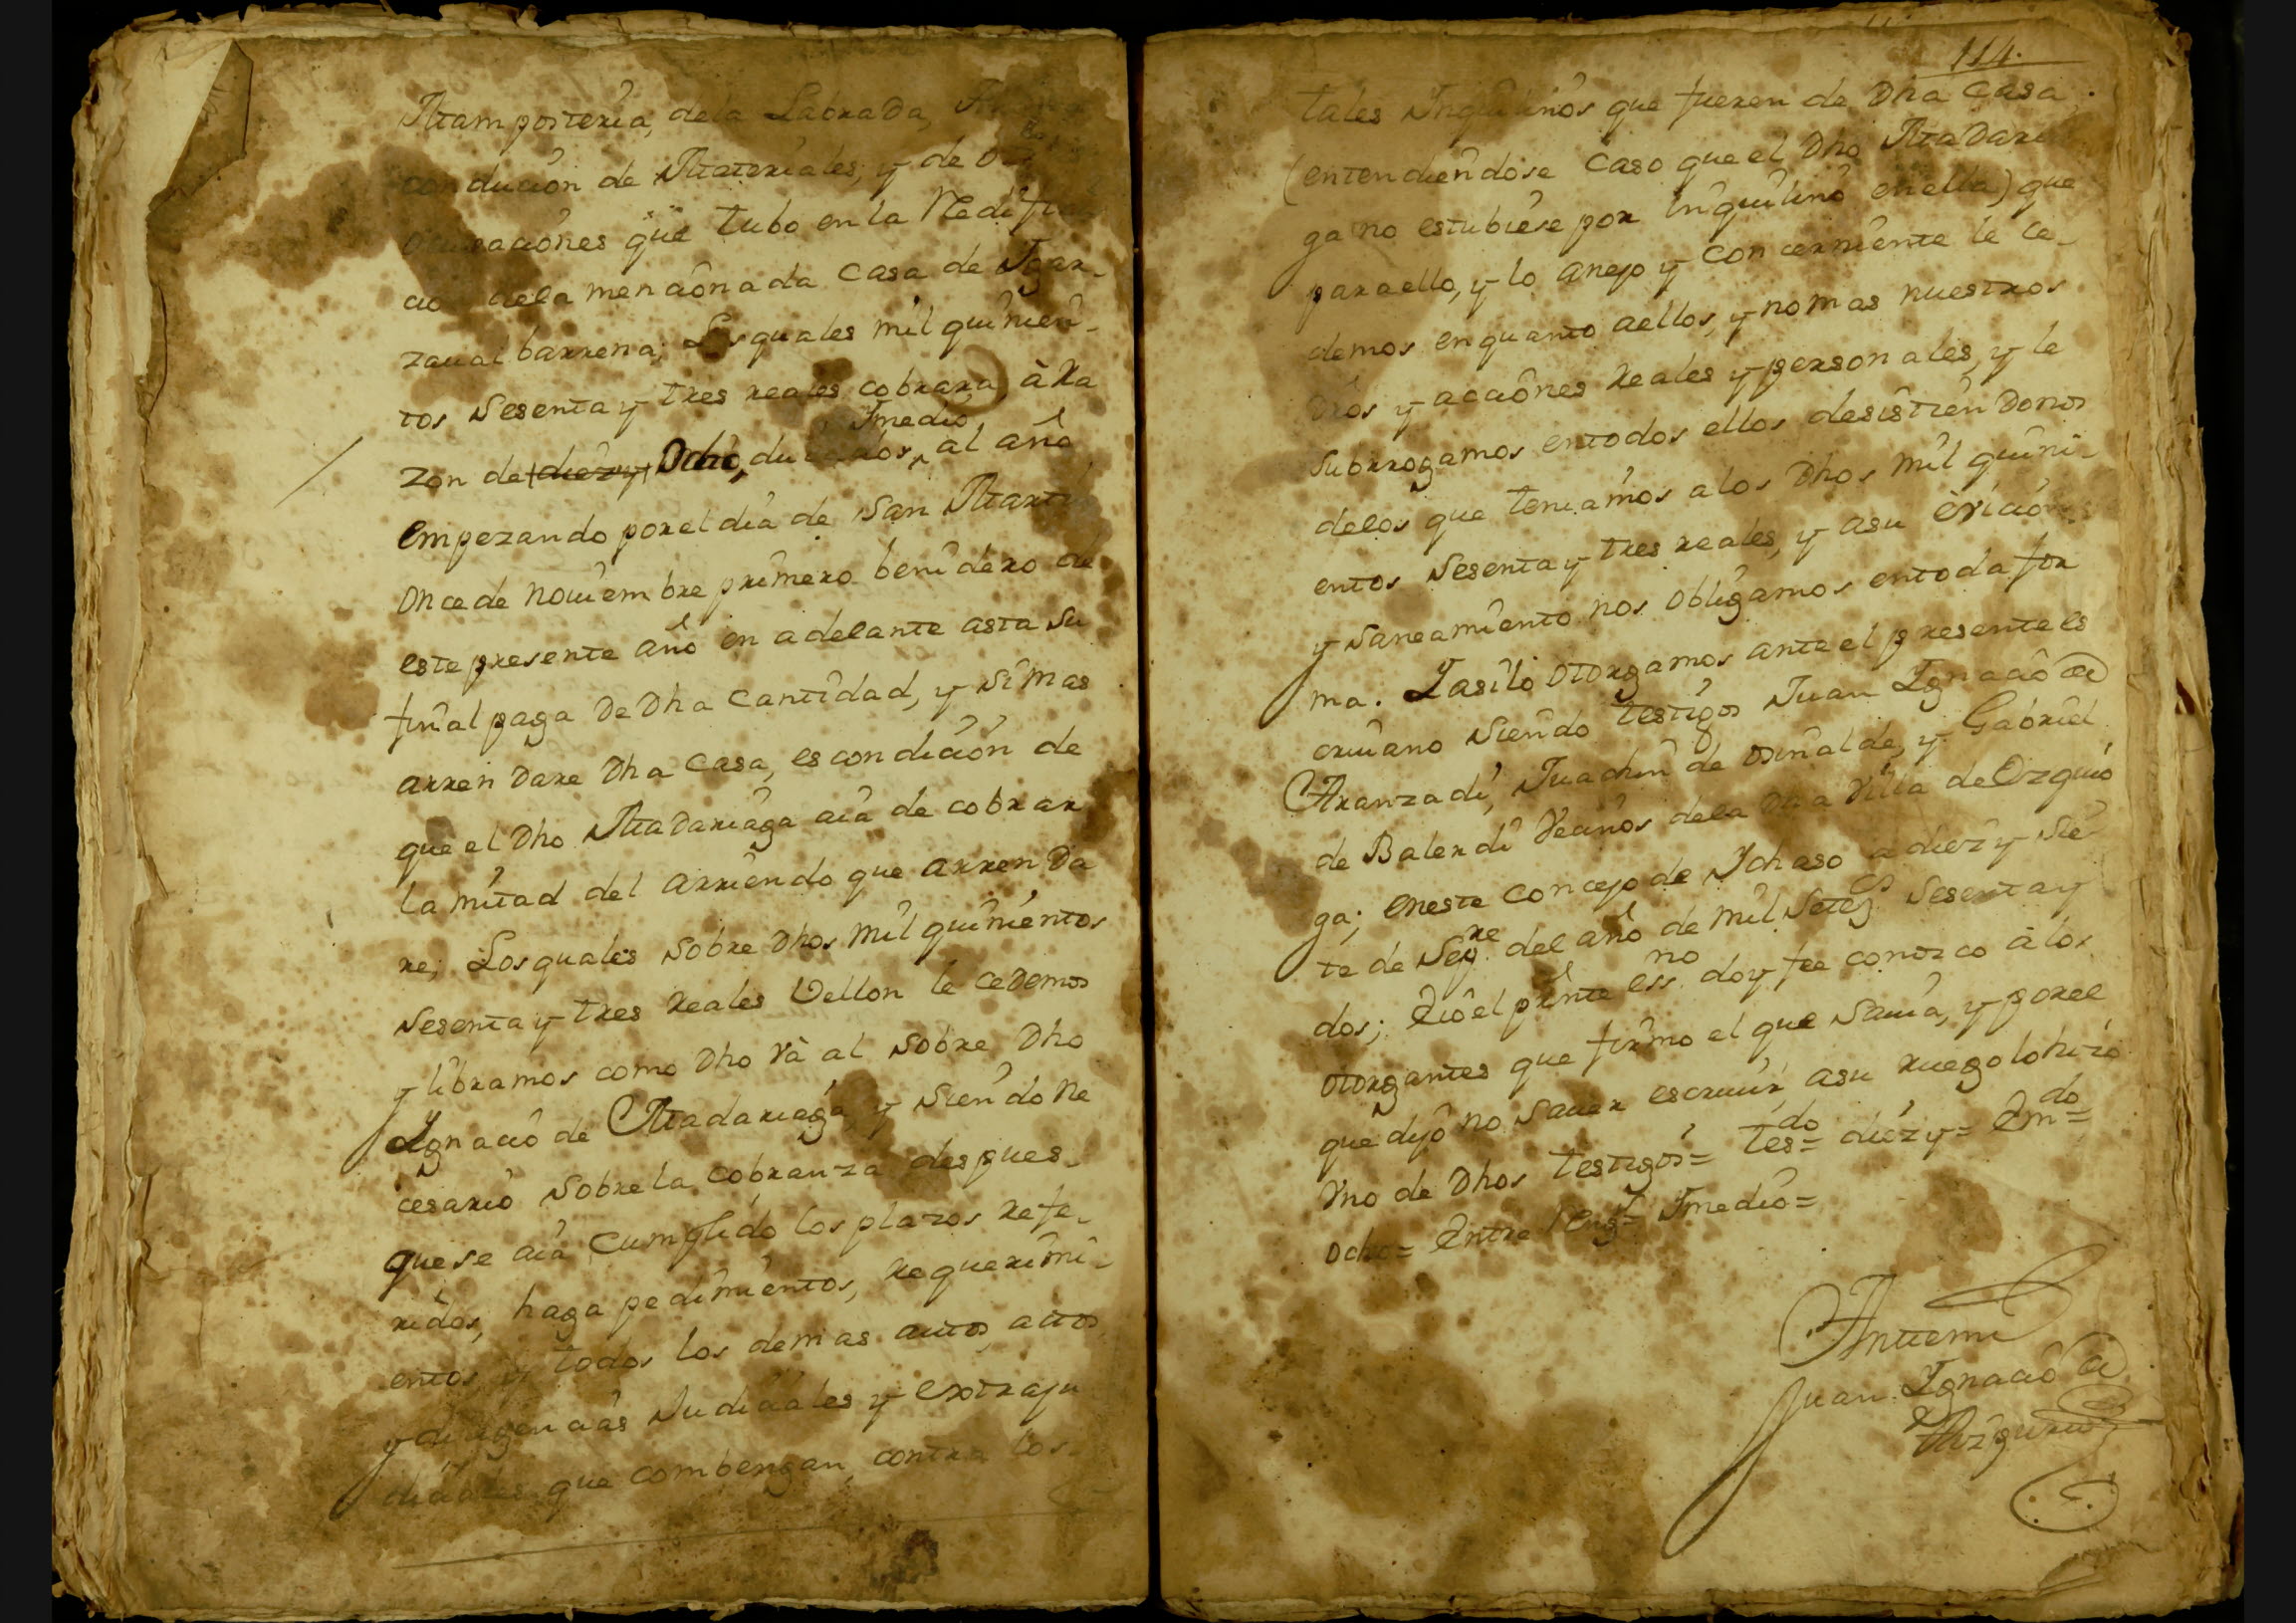 Mamposteria, dela Labrada,
condución de Materiales, y de
ocupaciones que tubo en la Redifica
ció dela mencionada Casa de Ygar-
zaualbarrena; Los quales mil quinien-
tos sesenta y tres reales cobrara, à Ra
Ymedio
zon de diez y Ocho, ducados, al año
empezando por el dia de San Martin
once de nouiembre primero benidero de
este presente año en adelante asta su
final paga de Dha Cantidad, y si mas
arrendare Dha Casa, es condición de
que el Dho Madariaga aia de cobrar
la mitad del arriendo que arrenda
re; Los quales sobre Dhos mil quinientos
sesenta y tres Reales Vellon le cedemos
y libramos como Dho và al sobre Dho
Ygnacio de Madariaga, y siendo ne
cesario sobre la cobranza despues
que se aia cumplido los plazos refe-
ridos, haga pedimientos, requerimi-
entos, y todos los demas autos, actos
y diligencias Judiciales y extraju
diciales que combengan, contra los
114.
tales Ynquilinos que fueren de Dha Casa,
(entendiendose caso que el Dho Madaria
ga no estubiese por inquilino en ella) que
para ello, y lo anejo y concerniente le ce-
demos en quanto aellos, y no mas nuestros
dros y acciones Reales y personales, y le
subrrogamos en todos ellos desistiendonos
delos que teniamos alos Dhos mil quini-
entos sesenta y tres reales, y asu èvició
y saneamiento nos obligamos en toda for
ma. Y asi lo otorgamos ante el presente es
criuano siendo testigos Juan Ygnacio de
Aranzadi, Juachin de osinalde, y Gabriel
de Balerdi Vecinos dela Dha Villa de Ozquió
ga; en este concejo de Ychaso a diez y sie
te de Sepre del año de mil Seteçs sesenta y
dos; Eio el prnte essno doy fee conozco à los
otorgantes que firmo el que sauia, y por el
que dijo no sauer escriuir, asu ruego lo hizo
Vno de Dhos testigos= tesdo= diez y= Emdo=
ocho= Entre Rengs Ymedio=
Antemi
Juan Ygnacio de